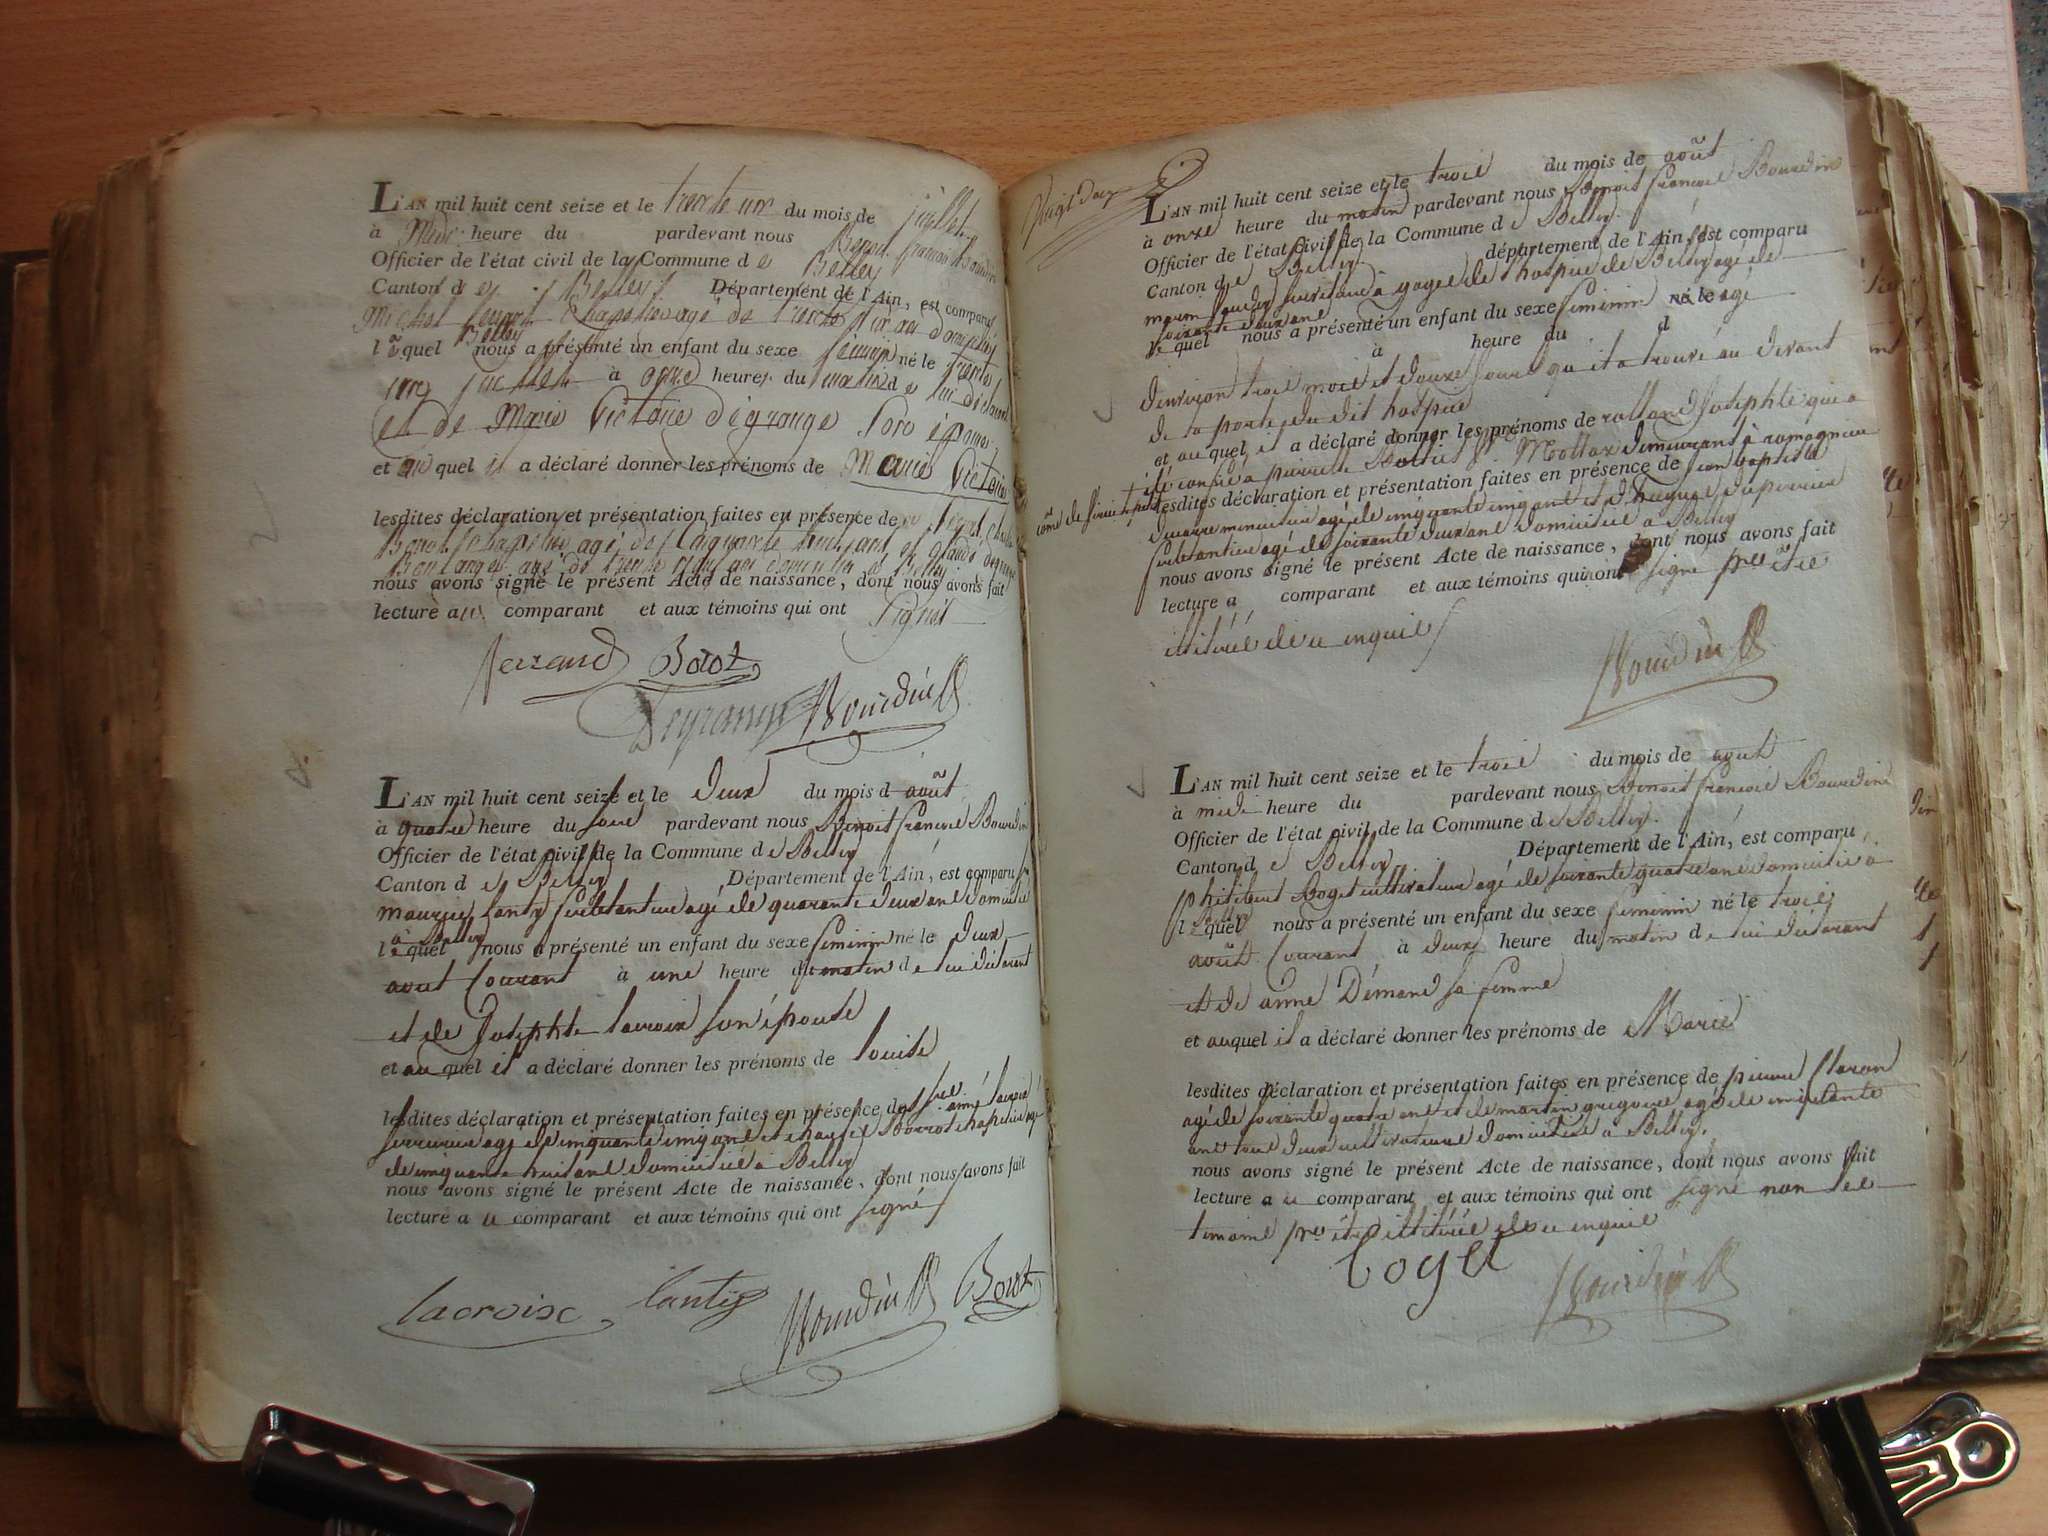 L'AN mil huit cent seize et le trente un du mois de juillet
à Midi heure du pardevant nous Benoit françois Bourdin
Officier de l'état civil de la Commune de Belley
Canton de Belley Département de l'Ain, est comparu
Michel ferrand Chapelier agé de trente six ans domicilié
à Belley
lequel nous a présenté un enfant du sexe féminin né le trente
un juillet à onze heures du matin de lui déclarant
et de Marie Victoire Dégrange son épouse
et auquel il a déclaré donner les prénoms de Marie Victoire
lesdites déclaration et présentation faites en présence de
Borot chapelier agé de Cinquante huit ans et Claude degrange
Boulanger agé de trente ans domicilié à Belley
nous avons signé le présent Acte de naissance, dont nous avons fait
lecture au comparant et aux témoins qui ont signés
ferrand Borot
Degrange Bourdin
L'AN mil huit cent seize et le deux du mois d août
à quatre heure du soir pardevant nous Benoit françois Bourdin
Officier de l'état civil de la Commune de Belley
Canton de Belley Département de l'Ain, est comparu
maurice lanty ferblantier agé de quarante deux ans domicilié
à Belley
lequel nous a présenté un enfant du sexe féminin né le deux
août Courant à une heure du matin de lui déclarant
et de Josephte lacroix son épouse
et auquel il a déclaré donner les prénoms de louise
lesdites déclaration et présentation faites en présence de aimé lacroix
serrurier agé de cinquante cinq ans et Borrot chapelier agé
de cinquante huit ans domicilié à Belley
nous avons signé le présent Acte de naissance, dont nous avons fait
lecture a ce comparant et aux témoins qui ont signé
lacroix lanty Bourdin Borot
Vingt deux
L'AN mil huit cent seize et le trois du mois de août
à onze heure du matin pardevant nous Benoit françois Bourdin
Officier de l'état civil de la Commune de Belley
Canton de Belley département de l'Ain, est comparu
servante à gages de l'hospice de Belley agé de
soixante deux ans
lequel nous a présenté un enfant du sexe féminin né le agé
à heure du d
d'environ trois mois et douze jours qu'il a trouvé au devant
de la porte du dit hospice
et auquel il a déclaré donner les prénoms de rolland Josephte qui a
été confié à pierrette demeurant à
lesdites déclaration et présentation faites en présence de jean baptiste
agé de cinquante cinq ans et duperrier
ferblantier agé de soixante deux ans domicilié à Belley
nous avons signé le présent Acte de naissance, dont nous avons fait
lecture a comparant et aux témoins qui ont signé
de ce enquis
Bourdin
L'AN mil huit cent seize et le trois du mois de août
à midi heure du pardevant nous Benoit françois Bourdin
Officier de l'état civil de la Commune de Belley
Canton de Belley Département de l'Ain, est comparu
Philibert Boget cultivateur agé de soixante quatre ans domicilié à
Belley
lequel nous a présenté un enfant du sexe féminin né le trois
août Courant à deux heure du matin de lui déclarant
et de anne Démand sa femme
et auquel il a déclaré donner les prénoms de Marie
lesdites déclaration et présentation faites en présence de pierre
agé de soixante quatre ans et de martin gregoire agé de cinquante
ans tous deux cultivateurs domiciliés à Belley.
nous avons signé le présent Acte de naissance, dont nous avons fait
lecture a ce comparant et aux témoins qui ont signé non les
témoins de ce enquis
boget
Bourdin